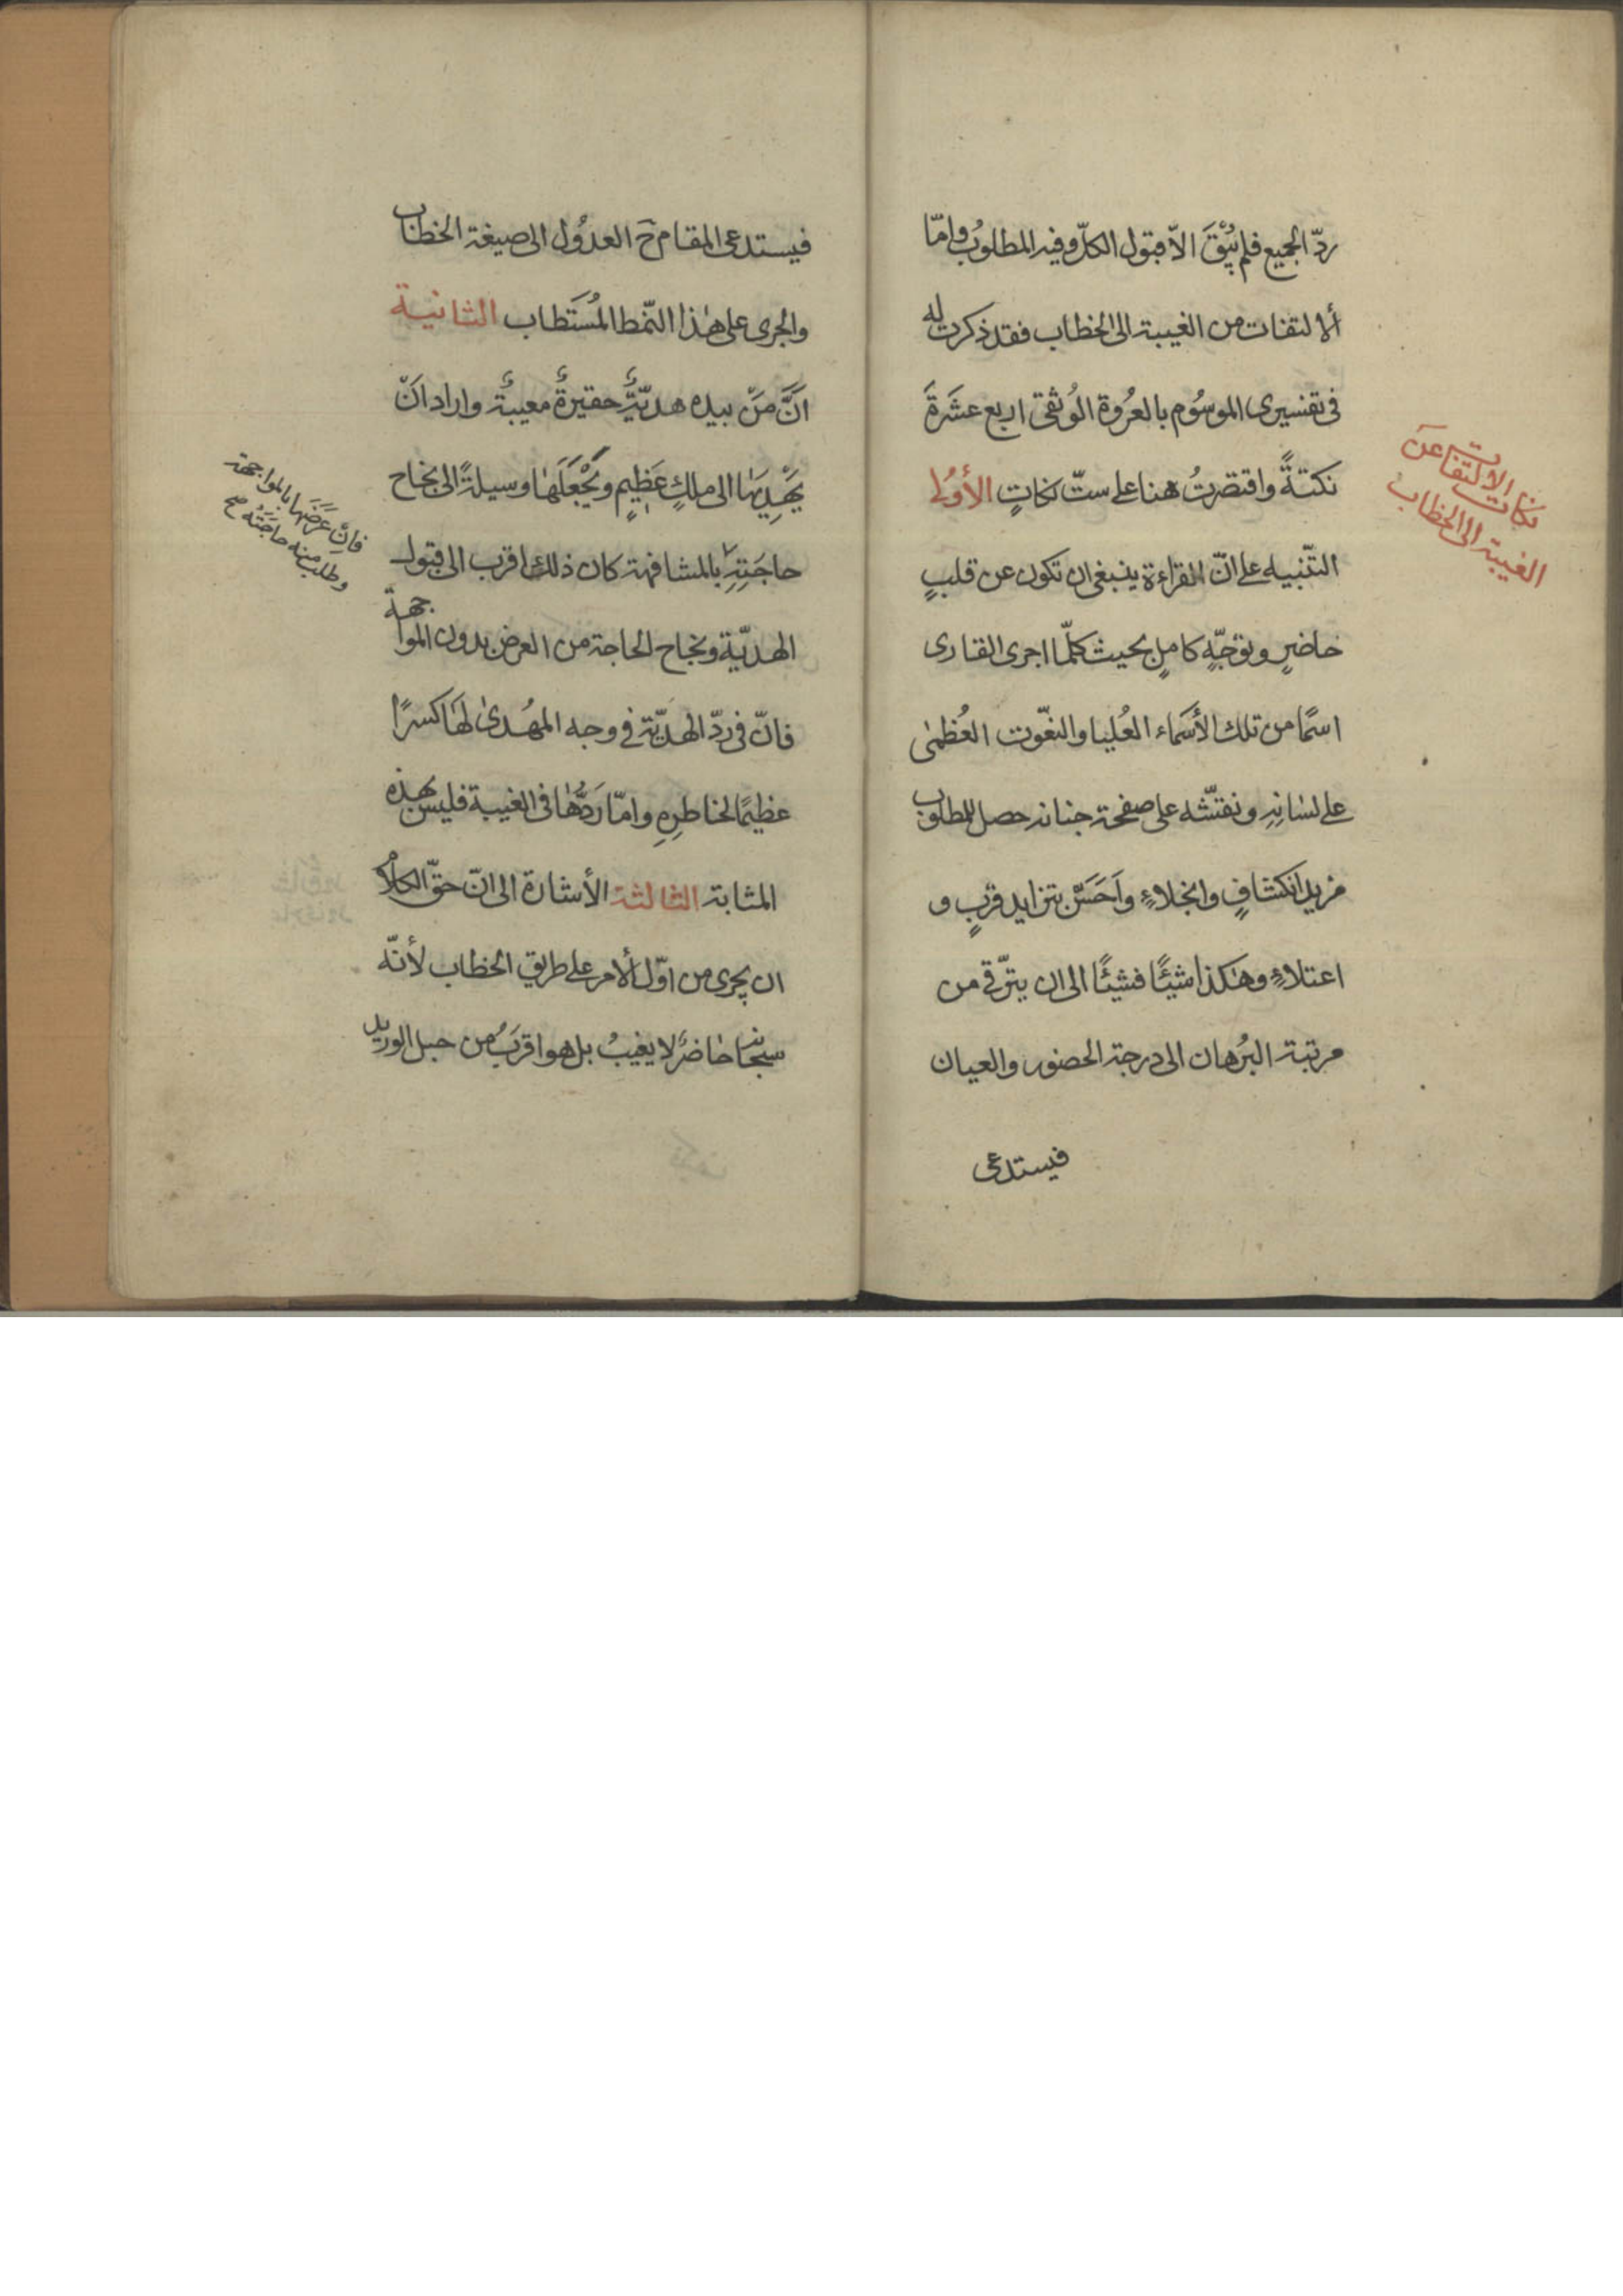 ردّ الجميع فلم يَبْقَ الاّ قبول الكلّ وفيه المطلوبُ وامّا
ألالتفات من الغيبة الى الخطاب فقد ذكرت له
فى تفسيرى الموسُوم بالعُروة الوُثقى اربع عشَرَةَ
نكتةً واقتصرتُ هنا على ستّ نكاتٍ الأُولى
التّنبيه على انّ القراءة ينبغى ان تكون عن قلبٍ
حاضرٍ وتوجّهٍ كاملٍ بحيث كلّما اجرى القارى
اسمًا من تلك الأسَماء العُليا والنعّوت العُظمٰى
على لسانِهِ ونقتّشه على صفحة جنانه حصل للمطلوب
مزيد انكشافٍ وانجلاءٍ واَحَسَّ بتزايد قربٍ و
اعتلاءٍ وهٰكذا شيئًا فشيئًا الى ان يترّقى من
مرتبة البُرهان الى درجة الحضور والعيان
فيستدعى
نكات الالتفات عن
الغيبة الى الخطاب
فيستدعى المقام ح العدوُل الى صيغة الخطاب
والجرى على هٰذا النّمط المُستَطاب الثانية
انَّ مَنْ بيده هديّةٌ حقيرةٌ معيبةٌ واراد انْ
يَهْدِيَهٰا الى ملكٍ عَظِيمٍ ويَجْعَلَهٰا وسيلةً الى نجاح
حاجَتِهِ بالمشافهة كان ذلك اقرب الى قبول
الهديّة ونجاح الحاجة من العرض بدون المواجهة
فانّ فى ردّ الهديّة فى وجه المهُدىٰ لهَا كسرًا
عظيمًا لخاطرِهِ وامّا رَدُّهٰا فى الغيبة فليس بهذه
المثابة الثالثة الأشارة الى انّ حقّ الكلام
ان يجرى من اوّل ألامر على طريق الخطاب لأنّه
سبحانه حٰاضرٌ لا يغيبُ بل هو اقرَبُ من حبل الوريد
فانْ عَرَضَها بالمواجهة
وطلب منه حاجَتَه صح